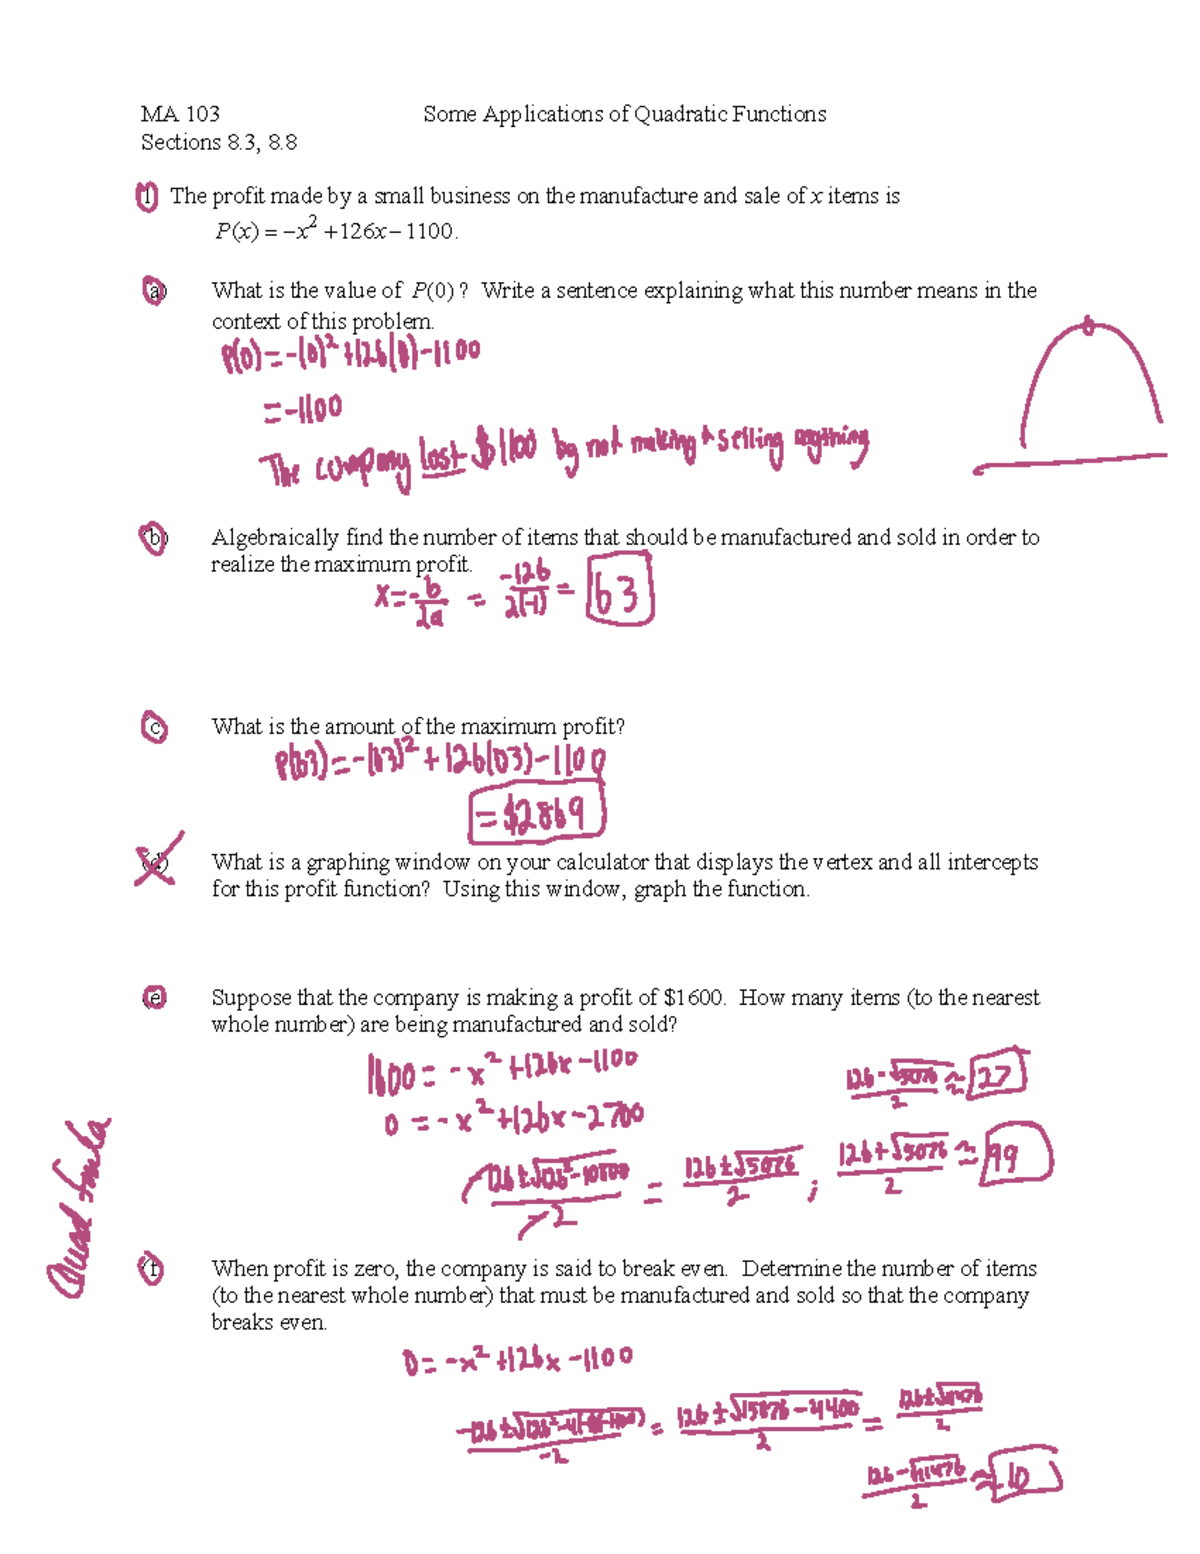 MA 103 Some Applications of Quadratic Functions
Sections 8.3, 8.8
1) The profit made by a small business on the manufacture and sale of x items is
P(x) = −x² +126x− 1100.
(a) What is the value of P(0) ? Write a sentence explaining what this number means in the
context of this problem.
P(0) = -(0)² +126(0) -1100
= -1100
The company lost $1100 by not making + selling anything
(b) Algebraically find the number of items that should be manufactured and sold in order to
realize the maximum profit.
x = -b/2a = -126/2(-1) = 63
(c) What is the amount of the maximum profit?
P(63) = -(63)² + 126(63) -1100
= $2869
(d) What is a graphing window on your calculator that displays the vertex and all intercepts
for this profit function? Using this window, graph the function.
(e) Suppose that the company is making a profit of $1600. How many items (to the nearest
whole number) are being manufactured and sold?
1600 = -x² +126x -1100
0 = -x² +126x -2700
126 - √5076 / 2 ≈ 27
-126 ± √126² - 10800 / -2 = 126 ± √5076 / 2 ; 126 + √5076 / 2 ≈ 99
Quad fmula
(f) When profit is zero, the company is said to break even. Determine the number of items
(to the nearest whole number) that must be manufactured and sold so that the company
breaks even.
0 = -x² +126x -1100
-126 ± √126² -4(-1)(-1100) / -2 = 126 ± √15876 - 4400 / 2 = 126 ± √11476 / 2
126 - √11476 / 2 ≈ 10